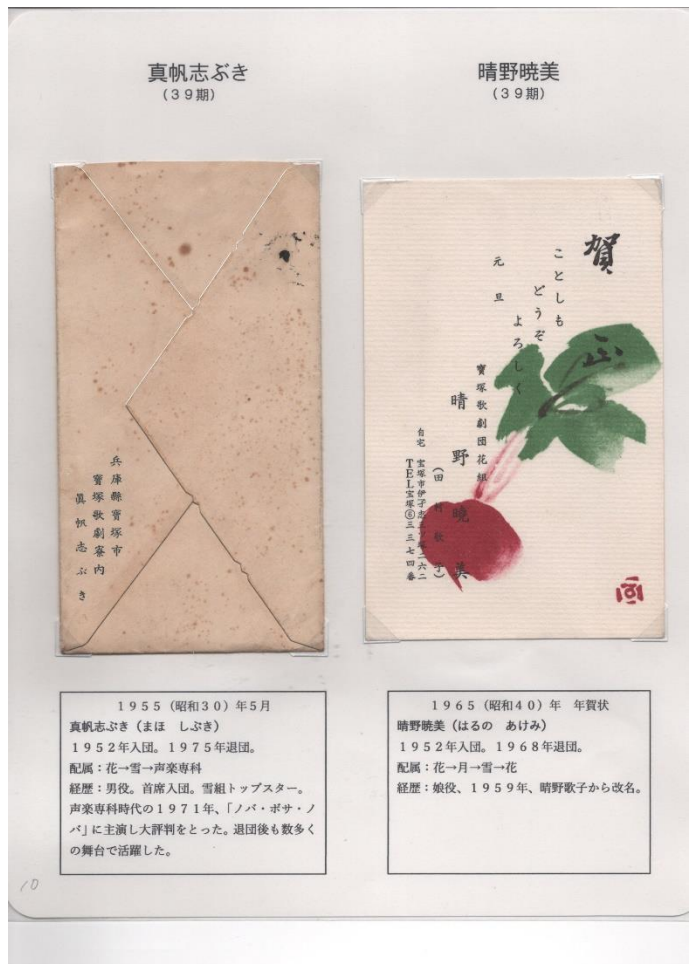 真帆志ぶき
（３９期）
晴野暁美
（３９期）
兵庫縣寶塚市
寶塚歌劇寮内
眞帆志ぶき
賀正
ことしも
どうぞ
よろしく
元旦
寶塚歌劇団花組
晴野曉美
（田村歌子）
自宅 宝塚市伊孑志
TEL宝塚⑥三三七四番
１９５５（昭和３０）年５月
真帆志ぶき（まほ　しぶき）
１９５２年入団。１９７５年退団。
配属：花→雪→声楽専科
経歴：男役。首席入団。雪組トップスター。
声楽専科時代の１９７１年、「ノバ・ボサ・ノ
バ」に主演し大評判をとった。退団後も数多く
の舞台で活躍した。
１９６５（昭和４０）年　年賀状
晴野暁美（はるの　あけみ）
１９５２年入団。１９６８年退団。
配属：花→月→雪→花
経歴：娘役、１９５９年、晴野歌子から改名。
10